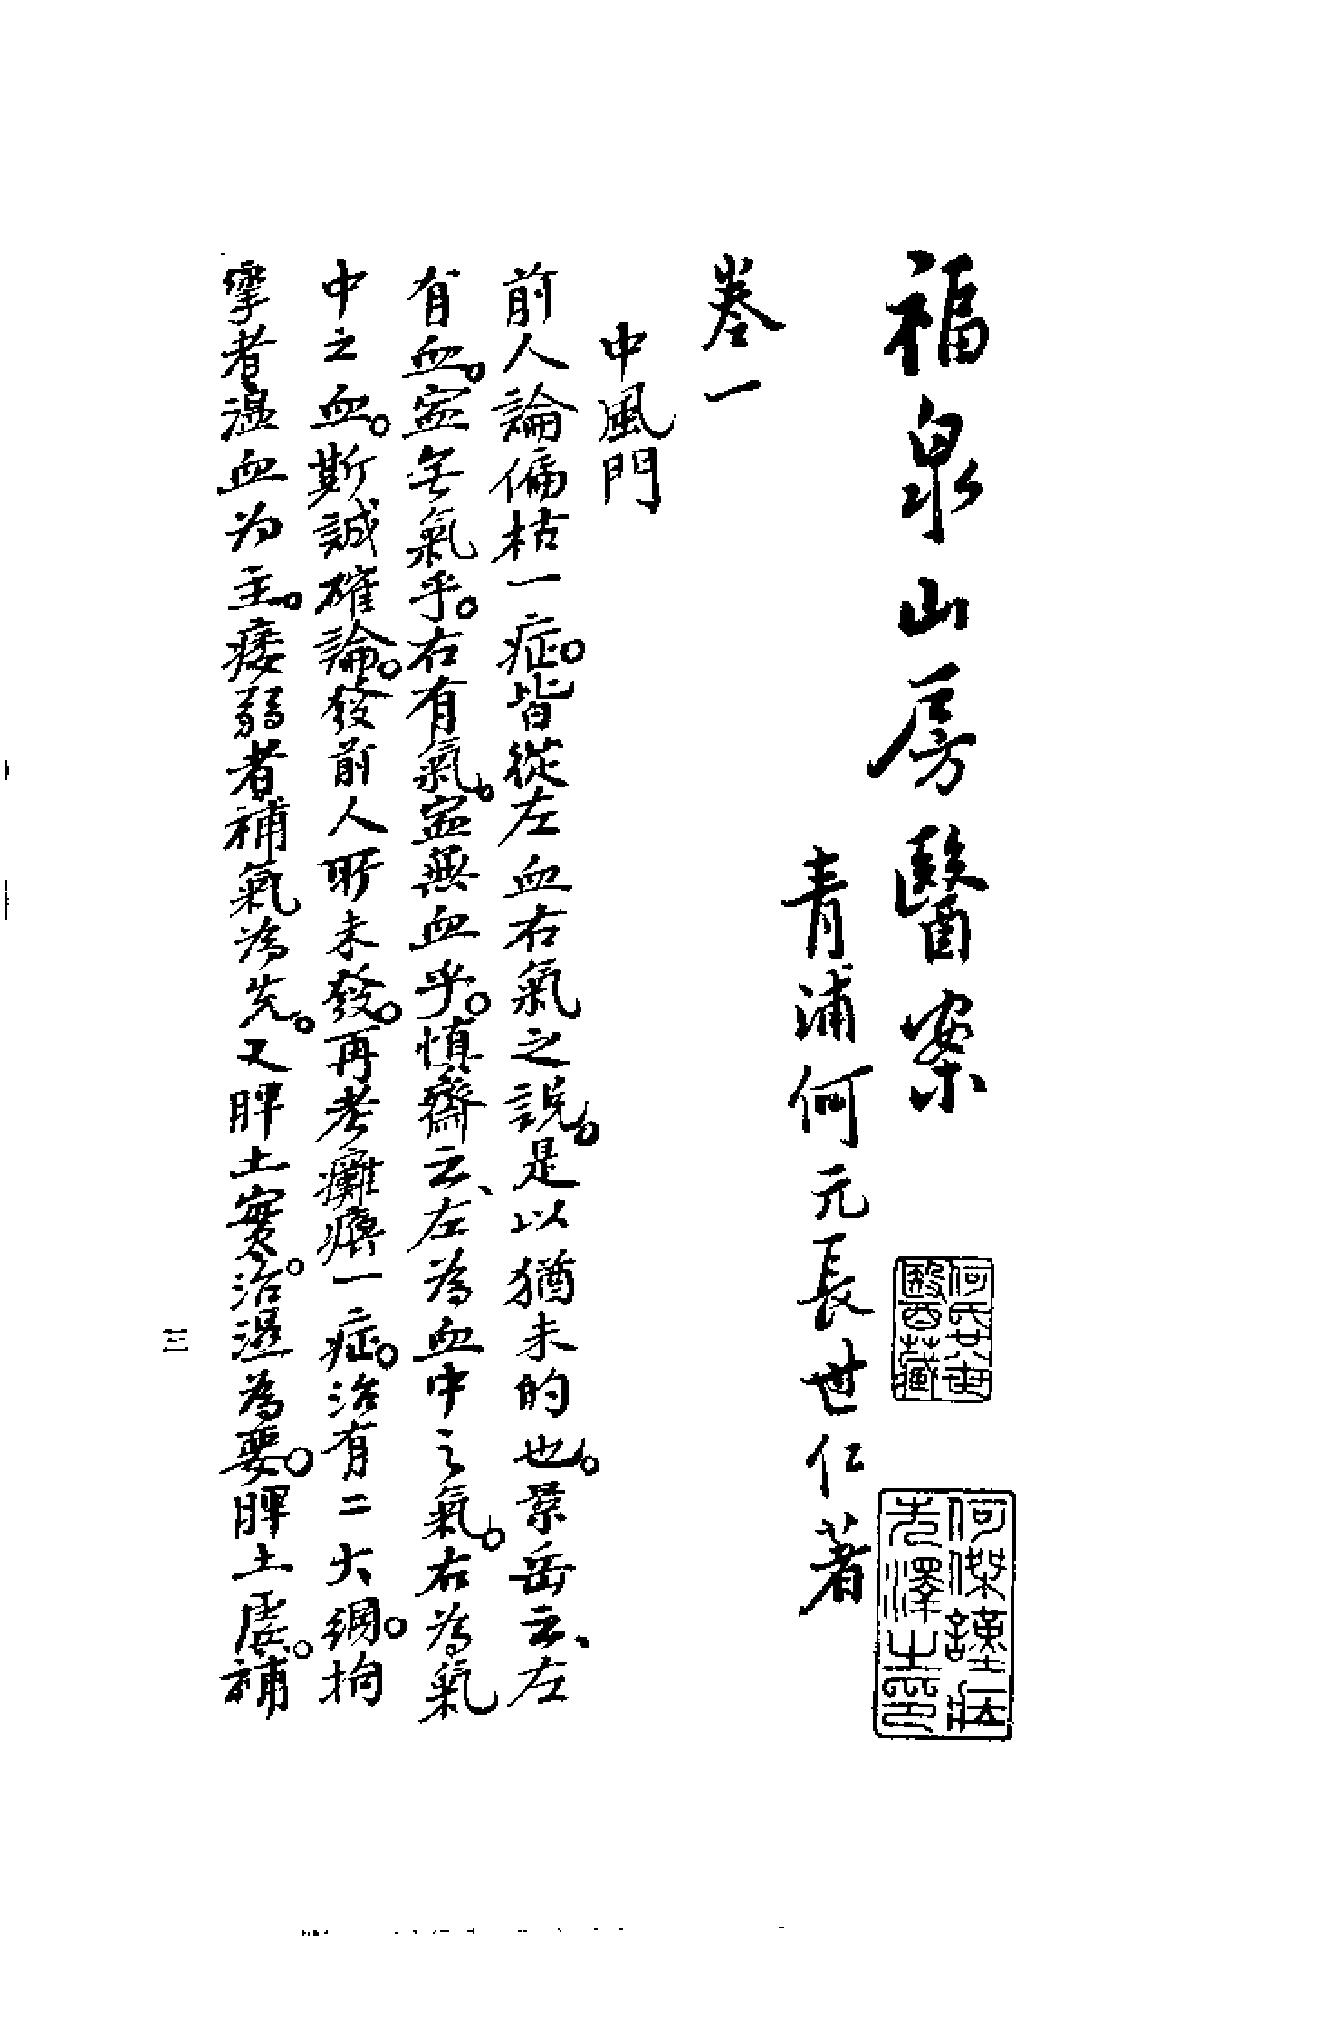 福泉山房醫案
何氏廿世醫藏
何傑謹莊先澤之印
青浦何元長世仁著
卷一
中風門
前人論偏枯一症。皆從左血右氣之說。是以猶未的也。景岳云、左
有血。寍无氣乎。右有氣。寍無血乎。慎齋云、左為血中之氣。右為氣
中之血。斯誠確論。發前人所未發。再考癱瘓一症。治有二大綱。拘
挛者温血为主。痿弱者補氣為先。又脾土實。治濕為要。脾土虛。補
三